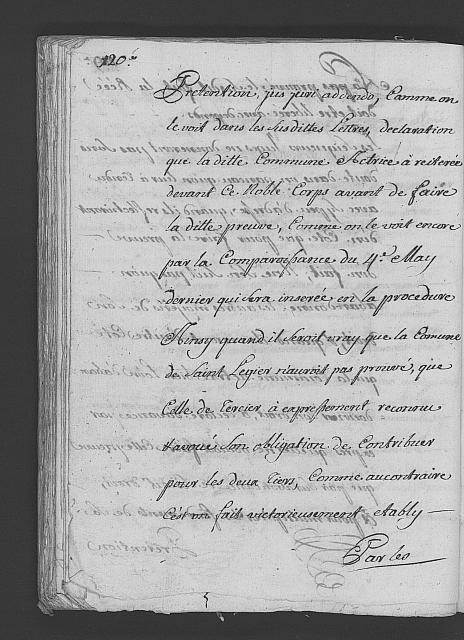 120.
Pretention, jus juri addendo, Comme on
le voit dans les susdittes Lettres, declaration
que la ditte Commune Actrice à reiterée
devant Ce Noble Corps avant de faire
la ditte preuve, Comme on le voit encore
par la Comparoissance du 4.e May
dernier qui sera inserée en la procedure
Ainsy quand il seroit vray que la Comune
de Saint Legier n'auroit pas prouvé, que
Celle de Tercier à expressement reconnu
& avoué son obligation de Contribuer
pour les deux Tiers, Comme au contraire
C'est un fait victorieusement etably —
Par les